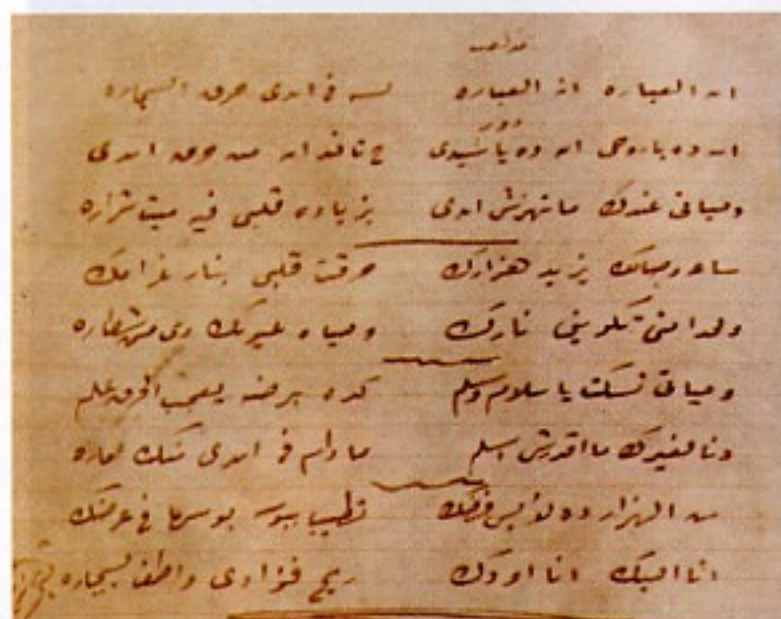 مذهب
ايه العباره ايه العباره لسه في ايدى حرق السجاره
دور
ايه ده ياروحى ايه ده ياسيدى ح تاخد ايه من حرق ايدى
وحياتى عندك ماتهزش ايدى بزياده قلبى فيه ميت شراره
يزيد هزارك حرقت قلبى بنار غرامك
ولدا متى تكوينى نارك وحياة عنيك دى مش شطاره
وحياتى تسكت يا سلام وسلم كده برضه الحرق علم
ونا لغيرك ما اقدرش اسلم مادام فى ايدى منك اماره
من الهزار ده تطيب ببوسه بوسها فى عرضك
انا احبك انا اودك ريح فؤادى واطفى السيجاره